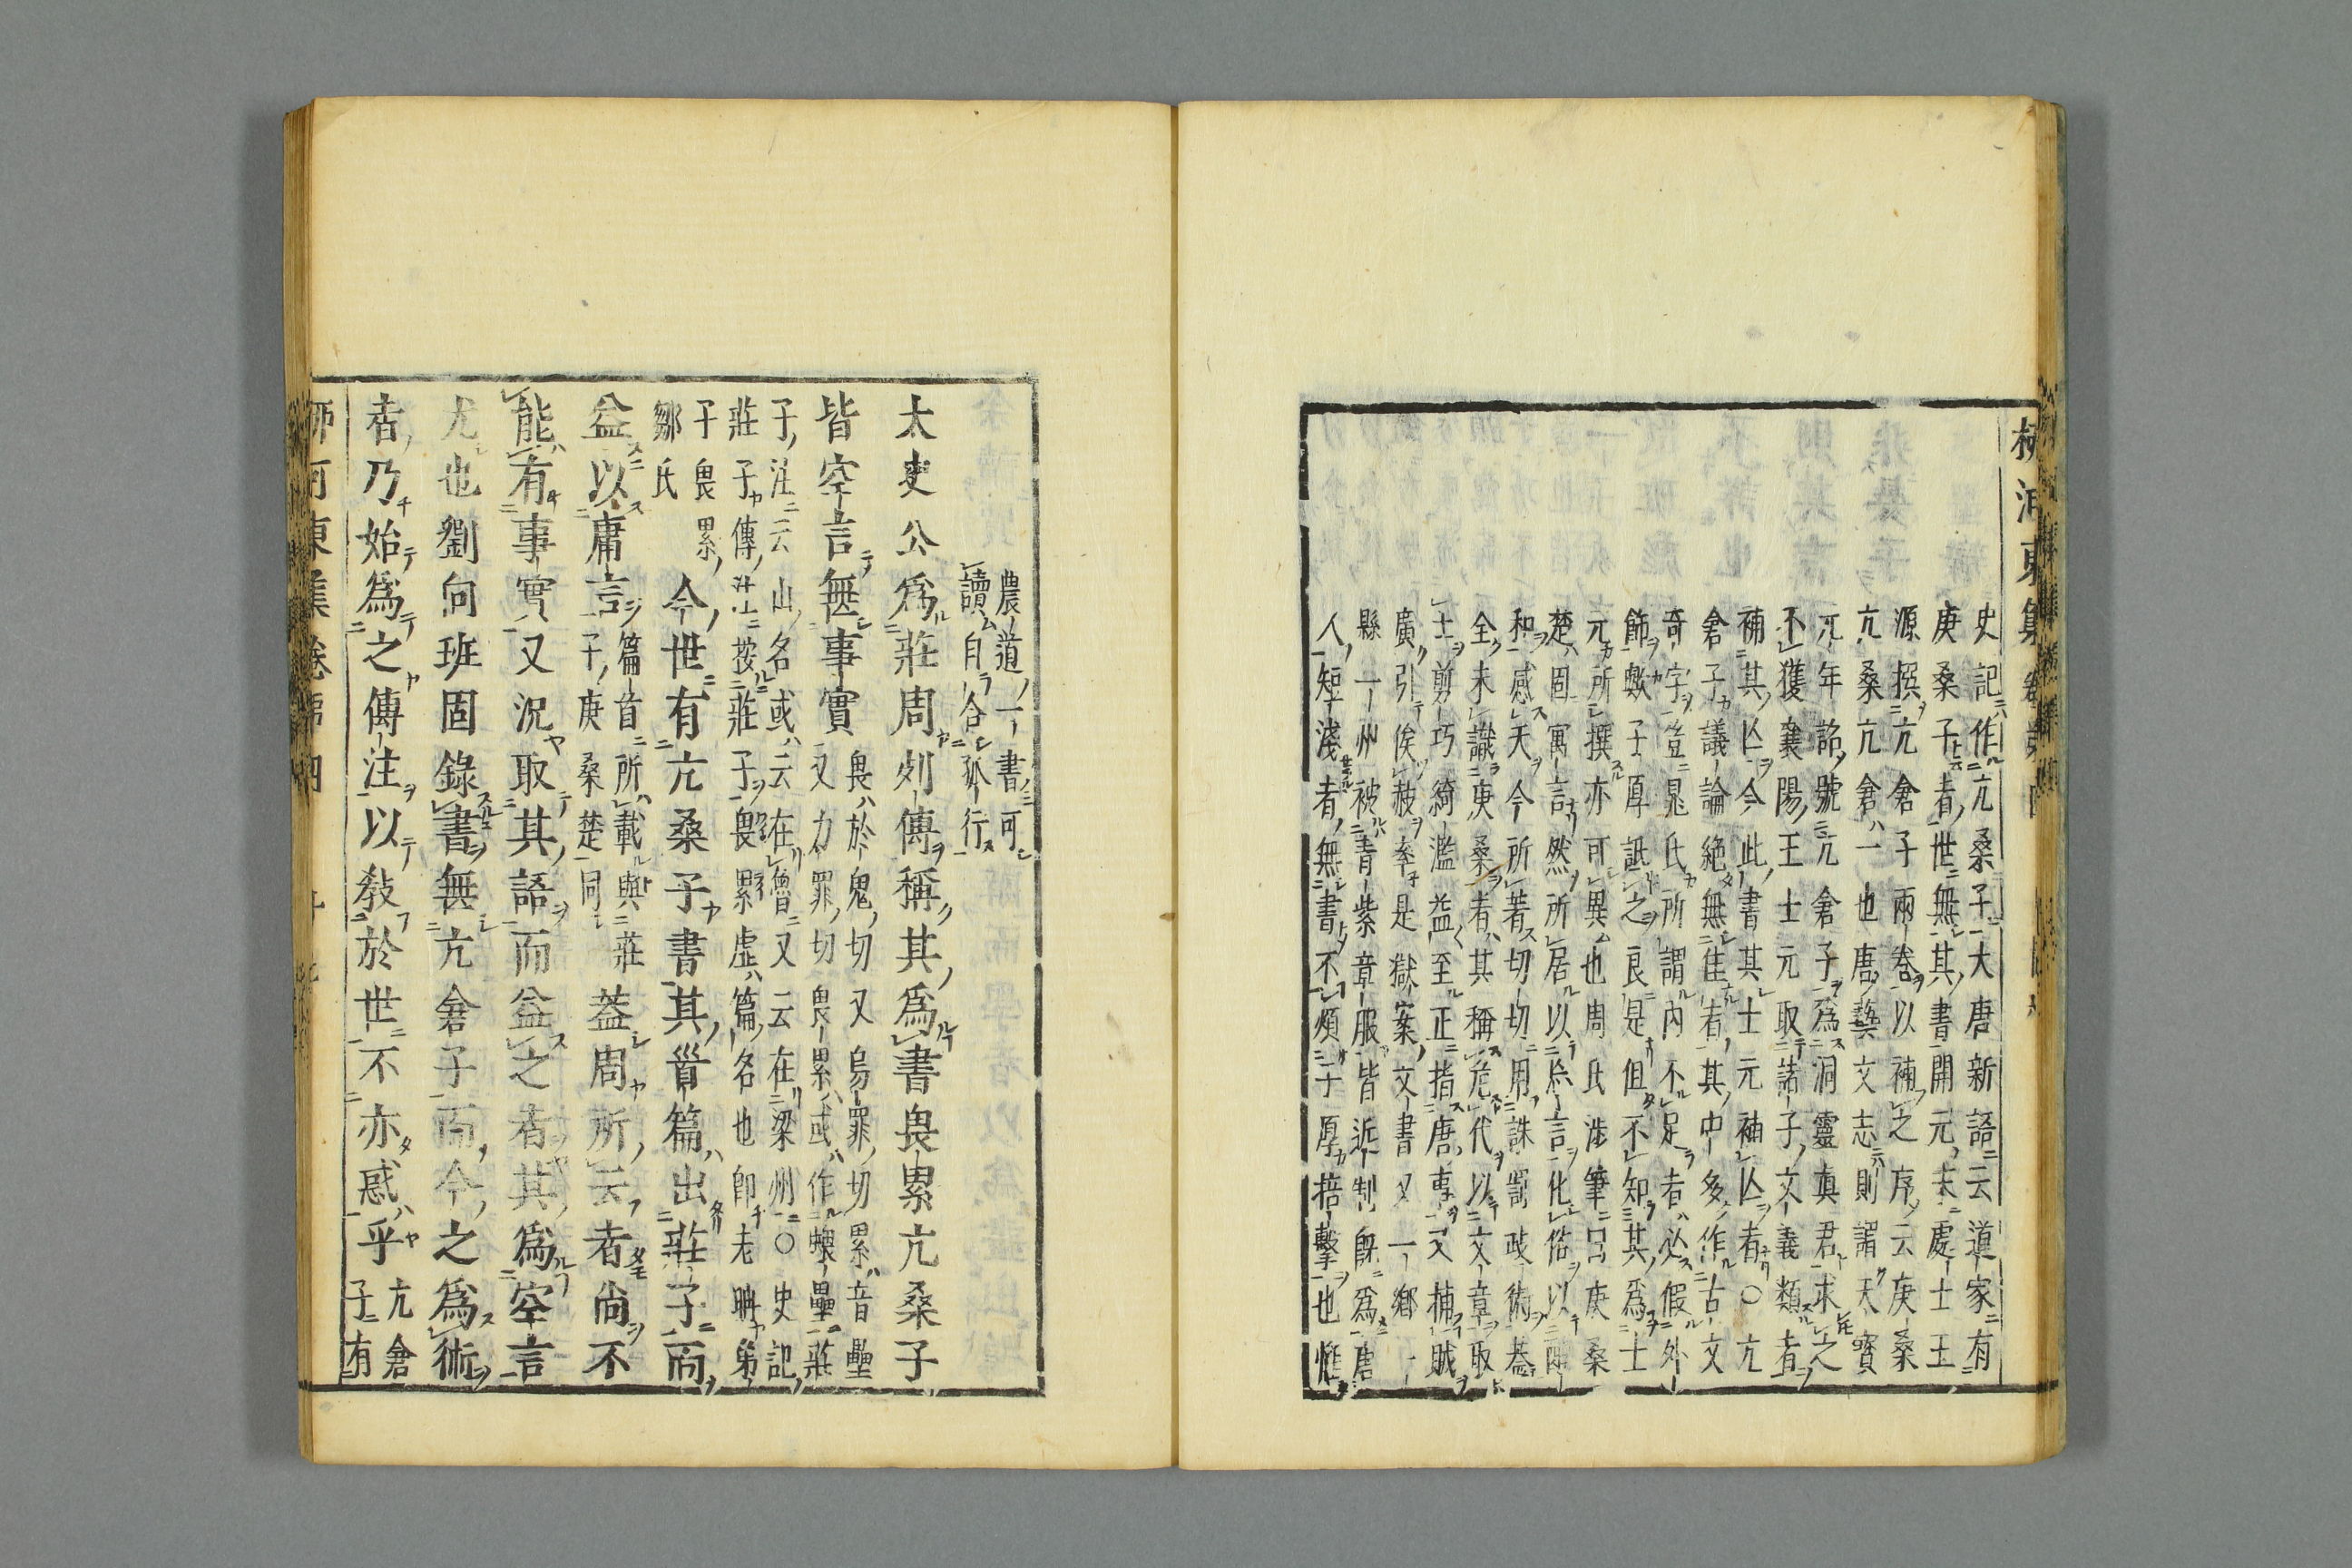 史記作亢桑子大唐新語云道家有
庚桑子者世無其書開元末處士王
源撰亢倉子兩卷以補之序云庚桑
亢桑亢倉一也唐藝文志則謂天寶
元年詔號亢倉子為洞靈真君求之
不獲襄陽王士元取諸子文義類者
補其亾今此書其士元補亾者○亢
倉子議論絕無佳者其中多作古文
奇字豈晁氏所謂內不足者必假外
飾歟子厚詆之良是但不知其為士
元所撰亦可異也周氏涉筆曰庚桑
楚固寓言然所居以忘言化俗以醇
和感天今所著切切用誅罰政術蓋
全未識庚桑者其稱危代以文章取
士剪巧綺濫益至正指唐事又捕賊
廣引俟赦奉是獄案文書又一鄉一
縣一州被青紫章服皆近制既為唐
人短淺者無書不煩子厚掊擊也惟
農道一書可
讀自合孤行
太史公為莊周列傳稱其為書畏累亢桑子
皆空言無事實
畏於鬼切又烏罪切累音壘
又力罪切畏累或作㟪壘莊
子注云山名或云在魯又云在梁州○史記
莊子傳註按莊子畏累虛篇名也即老聃弟
子畏累
鄒氏
今世有亢桑子書其首篇出莊子而
益以庸言
篇首所載與莊
子庚桑楚同
蓋周所云者尚不
能有事實又況取其語而益之者其為空言
尤也劉向班固錄書無亢倉子而今之為術
者乃始為之傳注以教於世不亦惑乎
亢倉
子有